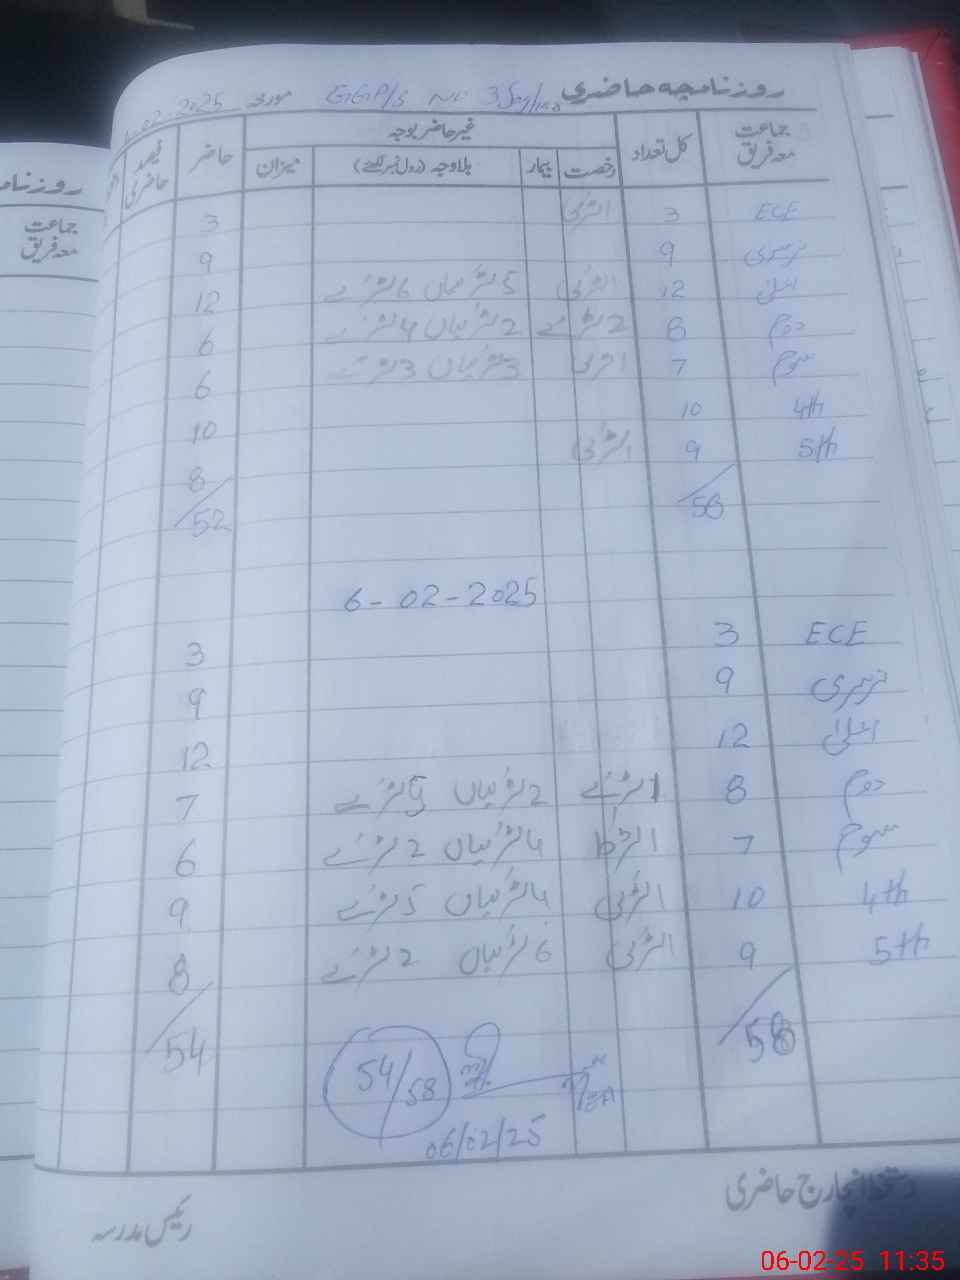 روزنامچہ حاضری GGP/S No 3 مورخہ 02-2025
جماعت معہ فریق کل تعداد غیر حاضر بوجہ حاضر فیصد حاضری
رخصت بیمار بلاوجہ (رول نمبر لکھئے) میزان
ECE 3 1 لڑکی 3
نرسری 9 9
اعلیٰ 12 1 لڑکی 5 لڑکیاں 6 لڑکے 12
دوم 8 2 لڑکے 2 لڑکیاں 4 لڑکے 6
سوم 7 1 لڑکی 3 لڑکیاں 3 لڑکے 6
4th 10 10
5th 9 1 لڑکی 8
58 52
6-02-2025
ECE 3 3
نرسری 9 9
اعلیٰ 12 12
دوم 8 1 لڑکے 2 لڑکیاں 5 لڑکے 7
سوم 7 1 لڑکا 4 لڑکیاں 2 لڑکے 6
4th 10 1 لڑکی 4 لڑکیاں 5 لڑکے 9
5th 9 1 لڑکی 6 لڑکیاں 2 لڑکے 8
58 54
54/58
06/02/25
دستخط انچارج حاضری رئیس مدرسہ
روزنام
جماعت
معہ فریق
06-02-25 11:35